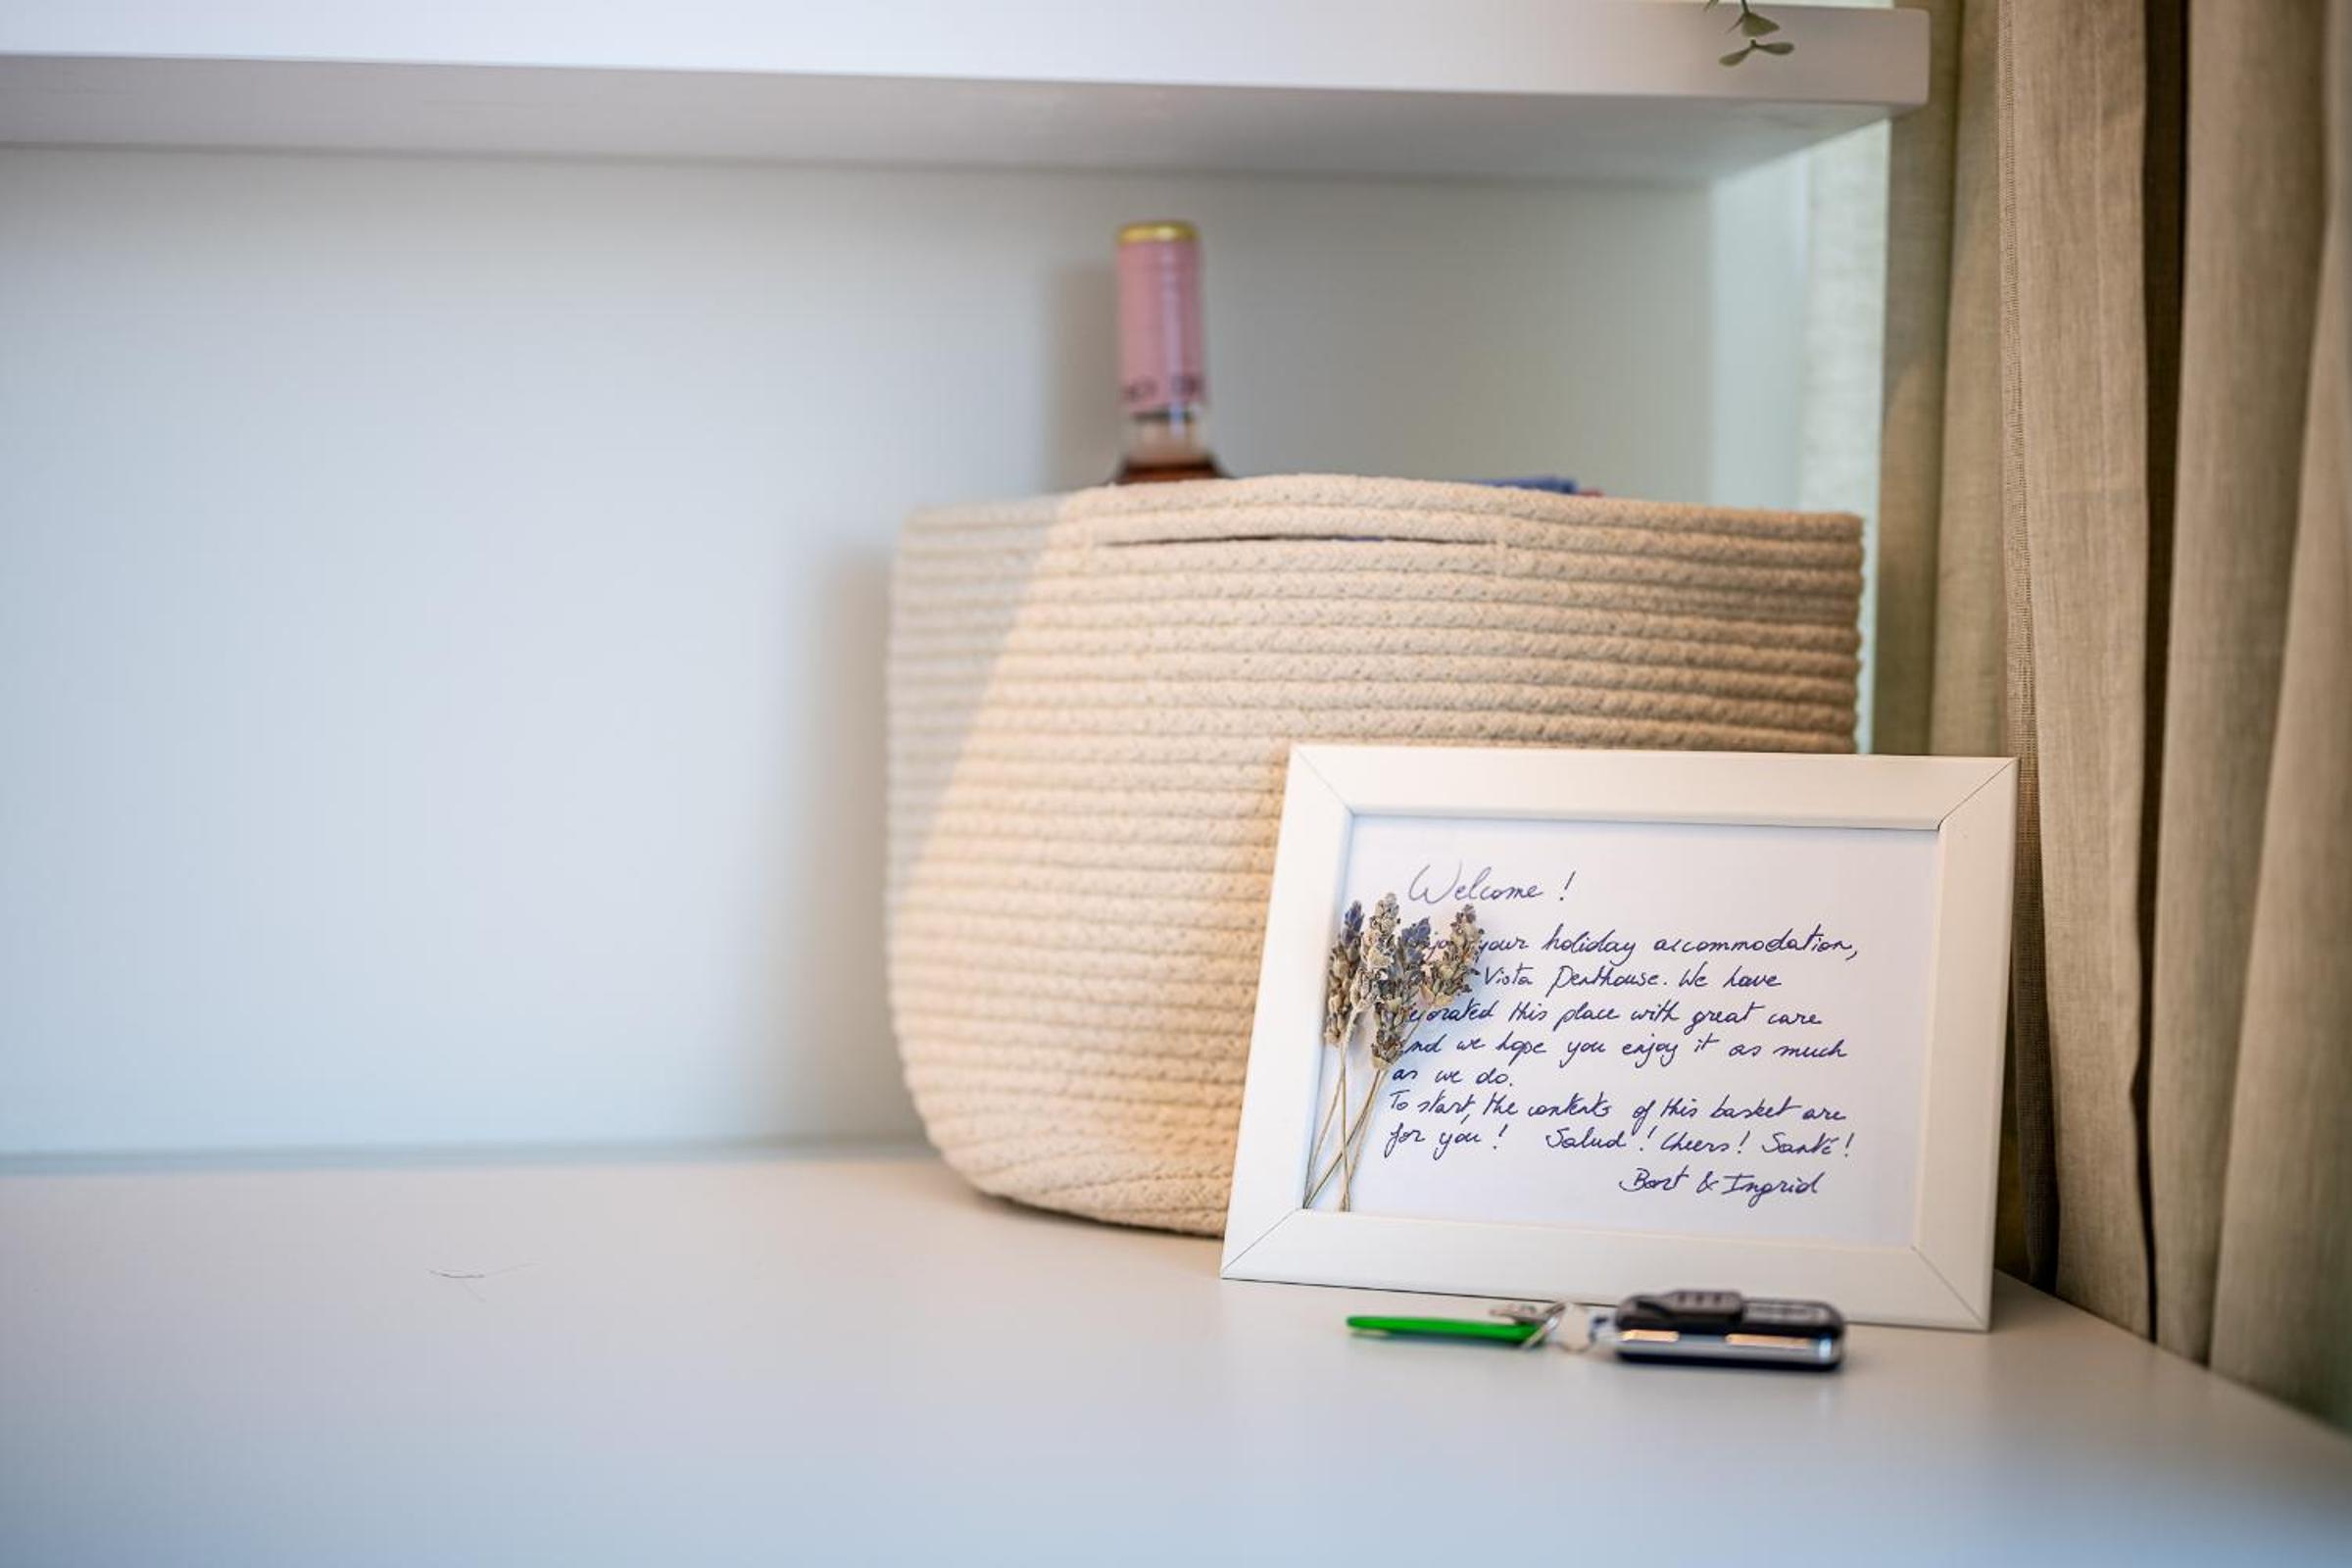 Welcome !
your holiday accommodation,
Vista Penthouse. We have
this place with great care
and we hope you enjoy it as much
as we do.
To start, the contents of this basket are
for you ! Salud ! Cheers ! Santé !
Bart & Ingrid